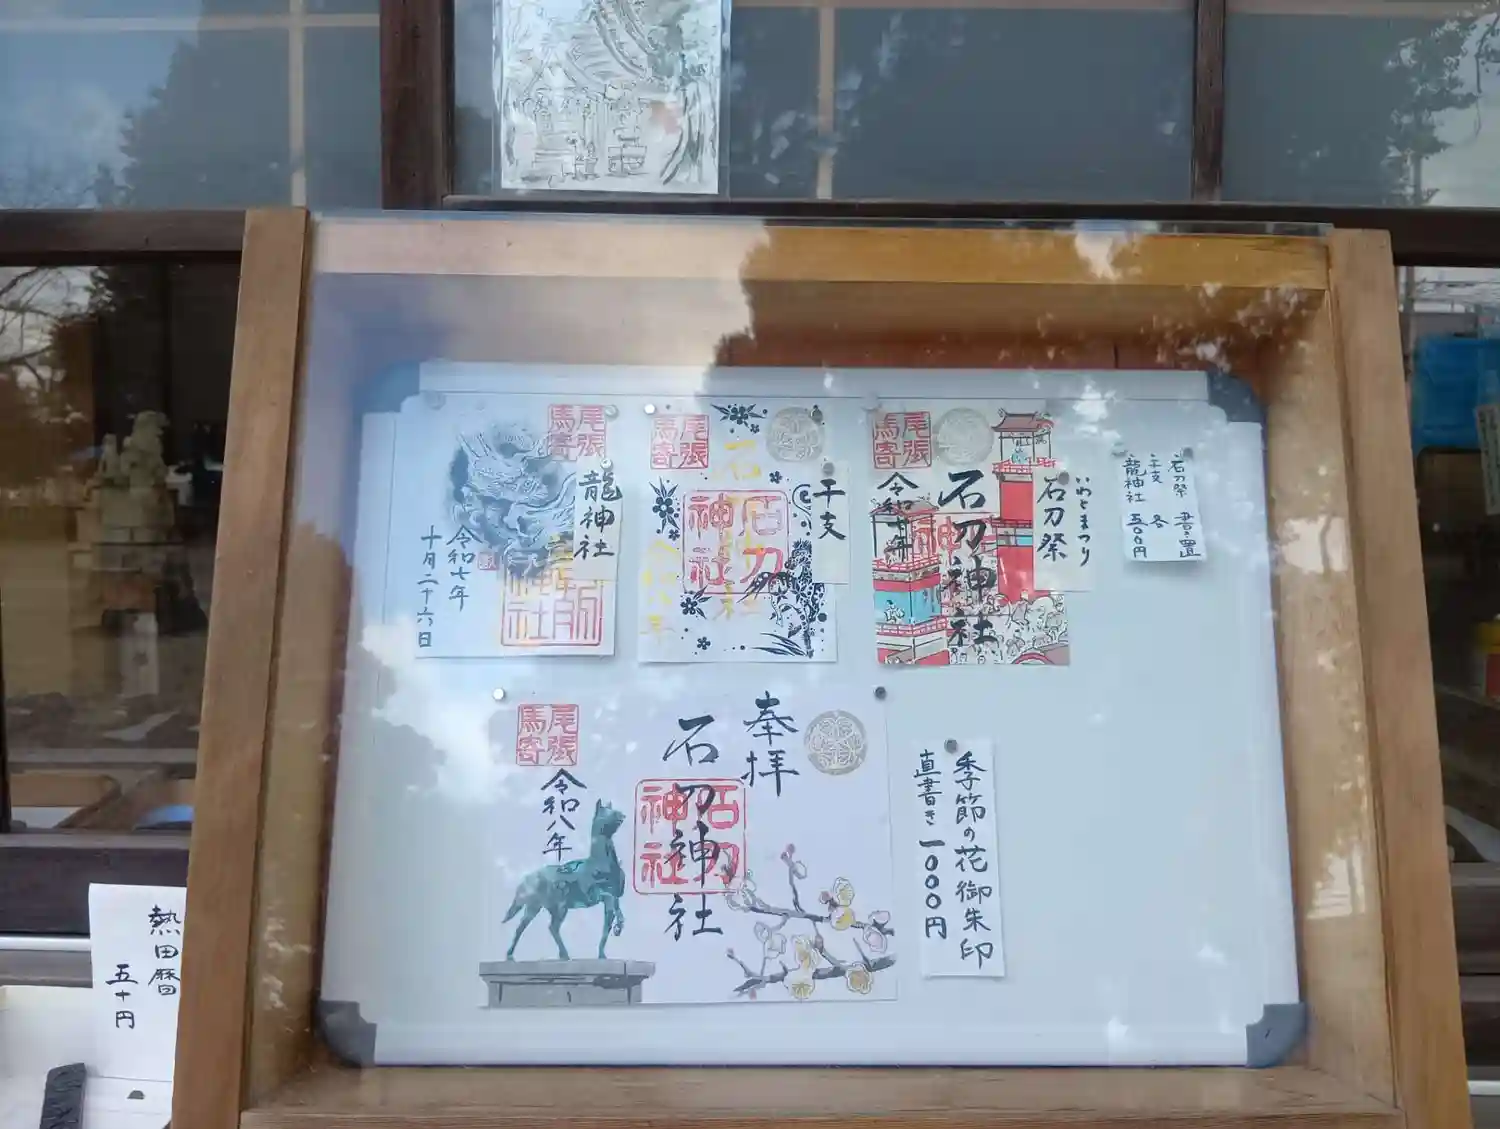 尾張
馬寄
龍神社
令和七年
十月二十六日
尾張
馬寄
干支
石刀
神社
尾張
馬寄
いわとまつり
石刀祭
石刀神社
石刀祭 書き置
干支 各
龍神社 五〇〇円
奉拝
石刀神社
石刀
神社
尾張
馬寄
令和八年
季節の花御朱印
直書き 一〇〇〇円
熱田暦
五十円